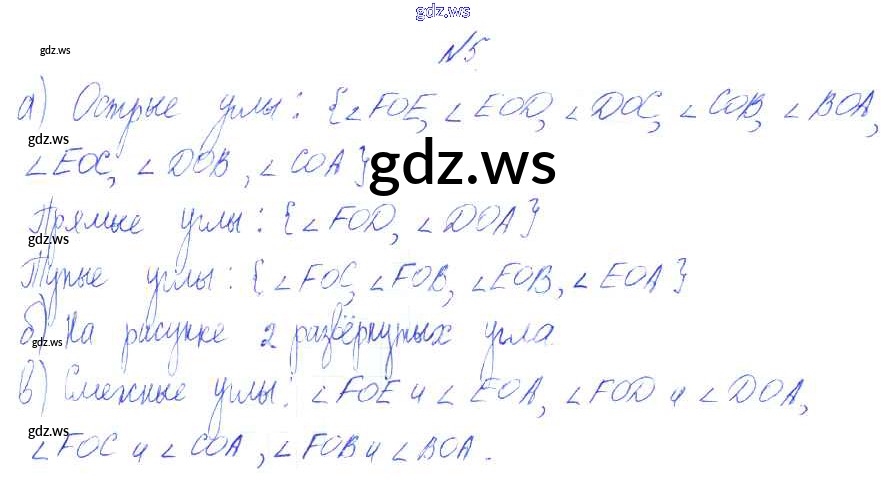 gdz.ws
№5.
gdz.ws
а) Острые углы: {∠FOE, ∠EOD, ∠DOC, ∠COB, ∠BOA,
gdz.ws
∠EOC, ∠DOB, ∠COA}
gdz.ws
Прямые углы: {∠FOD, ∠DOA}
gdz.ws
Тупые углы: {∠FOC, ∠FOB, ∠EOB, ∠EOA}
б) На рисунке 2 развёрнутых угла.
gdz.ws
в) Смежные углы: ∠FOE и ∠EOA, ∠FOD и ∠DOA,
gdz.ws
∠FOC и ∠COA, ∠FOB и ∠BOA.